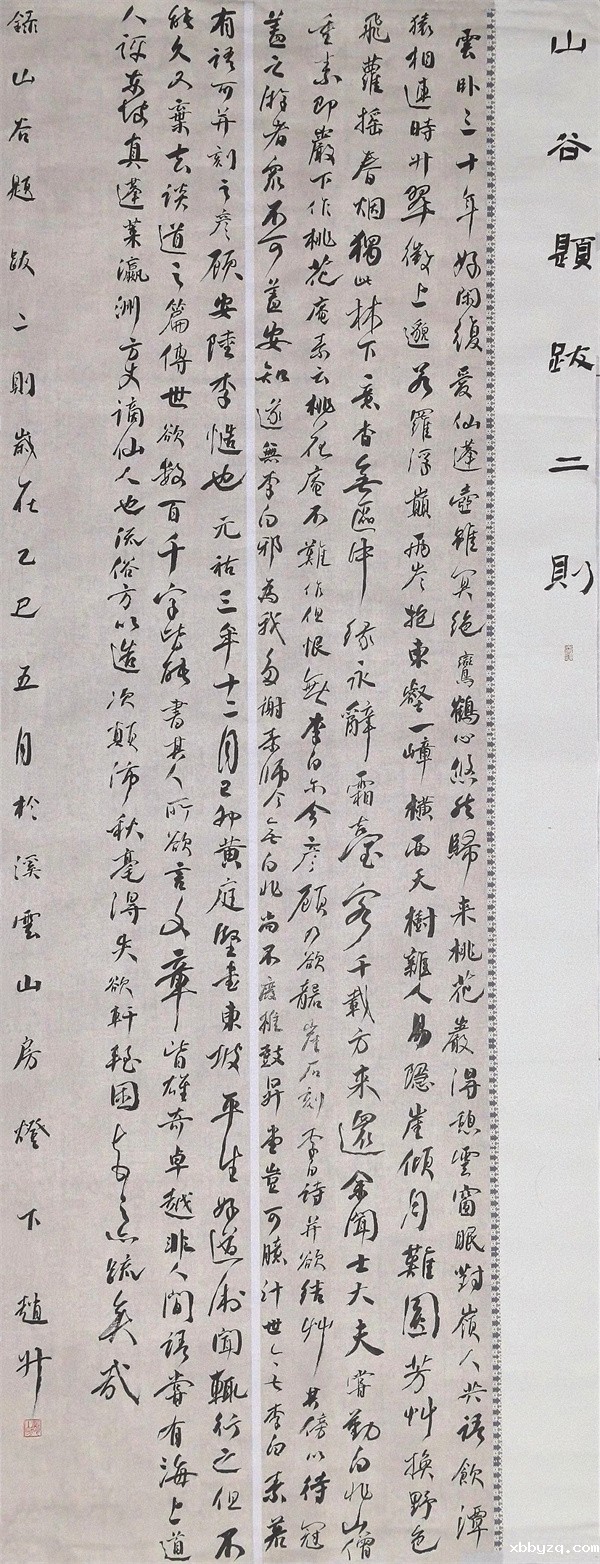 山谷題跋二則
雲卧三十年好閑復愛仙蓬壺雖冥绝鸞鶴心悠然歸来桃花巖得憩雲窗眠對嶺人共語飲潭
猿相連時升翠微上邈若羅浮巔兩岑抱東壑一嶂橫西天樹雜人易隱崖傾月難圓芳艸換野色
飛蘿摇春烟獨此林下意杳無區中緣永辭霜臺客千載方来還余聞士大夫嘗勸白兆山僧
重素即巖下作桃花庵素云桃花庵不難作但恨無李白尔今彥顧乃欲礱崖石刻李白詩并欲結艸其傍以待冠
蓋之游者衆不可蓋安知遂無李白邪為我多謝素師今無白兆尚不廢椎鼓昇堂豈可臆計世今無李白素若
有語可并刻之彥顧安陸李愭也元祐三年十二月己卯黄庭堅書東坡平生好道術聞輒行之但不
能久又棄去談道之篇傳世欲數百千字皆能書其人所欲言文章皆雄奇卓越非人間語嘗有海上道
人評東坡真蓬莱瀛洲方丈謫仙人也流俗方以造次顛沛秋毫得失欲軒輊困頓之亦疏矣哉
錄山谷題跋二則歲在乙巳五月於溪雲山房燈下趙升
xbbyzq.com